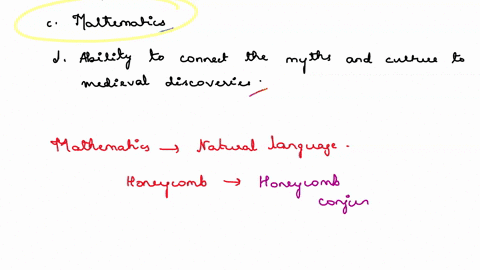 c. Mathematics
d. Ability to connect the myths and culture to
medieval discoveries.
Mathematics → Natural language.
Honeycomb → Honeycomb
conjur